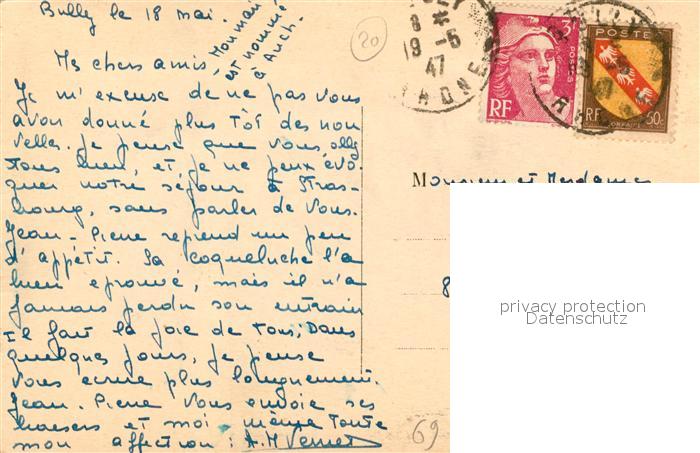 Bully le 18 mai.
Mon mari
est nommé
à Auch.
Mes chers amis,
Je m'excuse de ne pas vous
avoir donné plus tôt des nou
velles. Je pense que vous allez
tous bien, et je ne peux évo
quer notre séjour à Stras-
bourg, sans parler de vous.
Jean-Pierre reprend un peu
d'appétit. Sa coqueluche l'a
bien éprouvé, mais il n'a
jamais perdu son entrain
Il fait la joie de tous; Dans
quelques jours, je pense
vous écrire plus longuement.
Jean-Pierre vous envoie ses
baisers et moi-même toute
mon affection: A.M Vernet
20
8 *
19-5
47
RHONE
3F
POSTES
RF
POSTE
RF
50c
Monsieur et Mesdames
8
privacy protection
Datenschutz
69